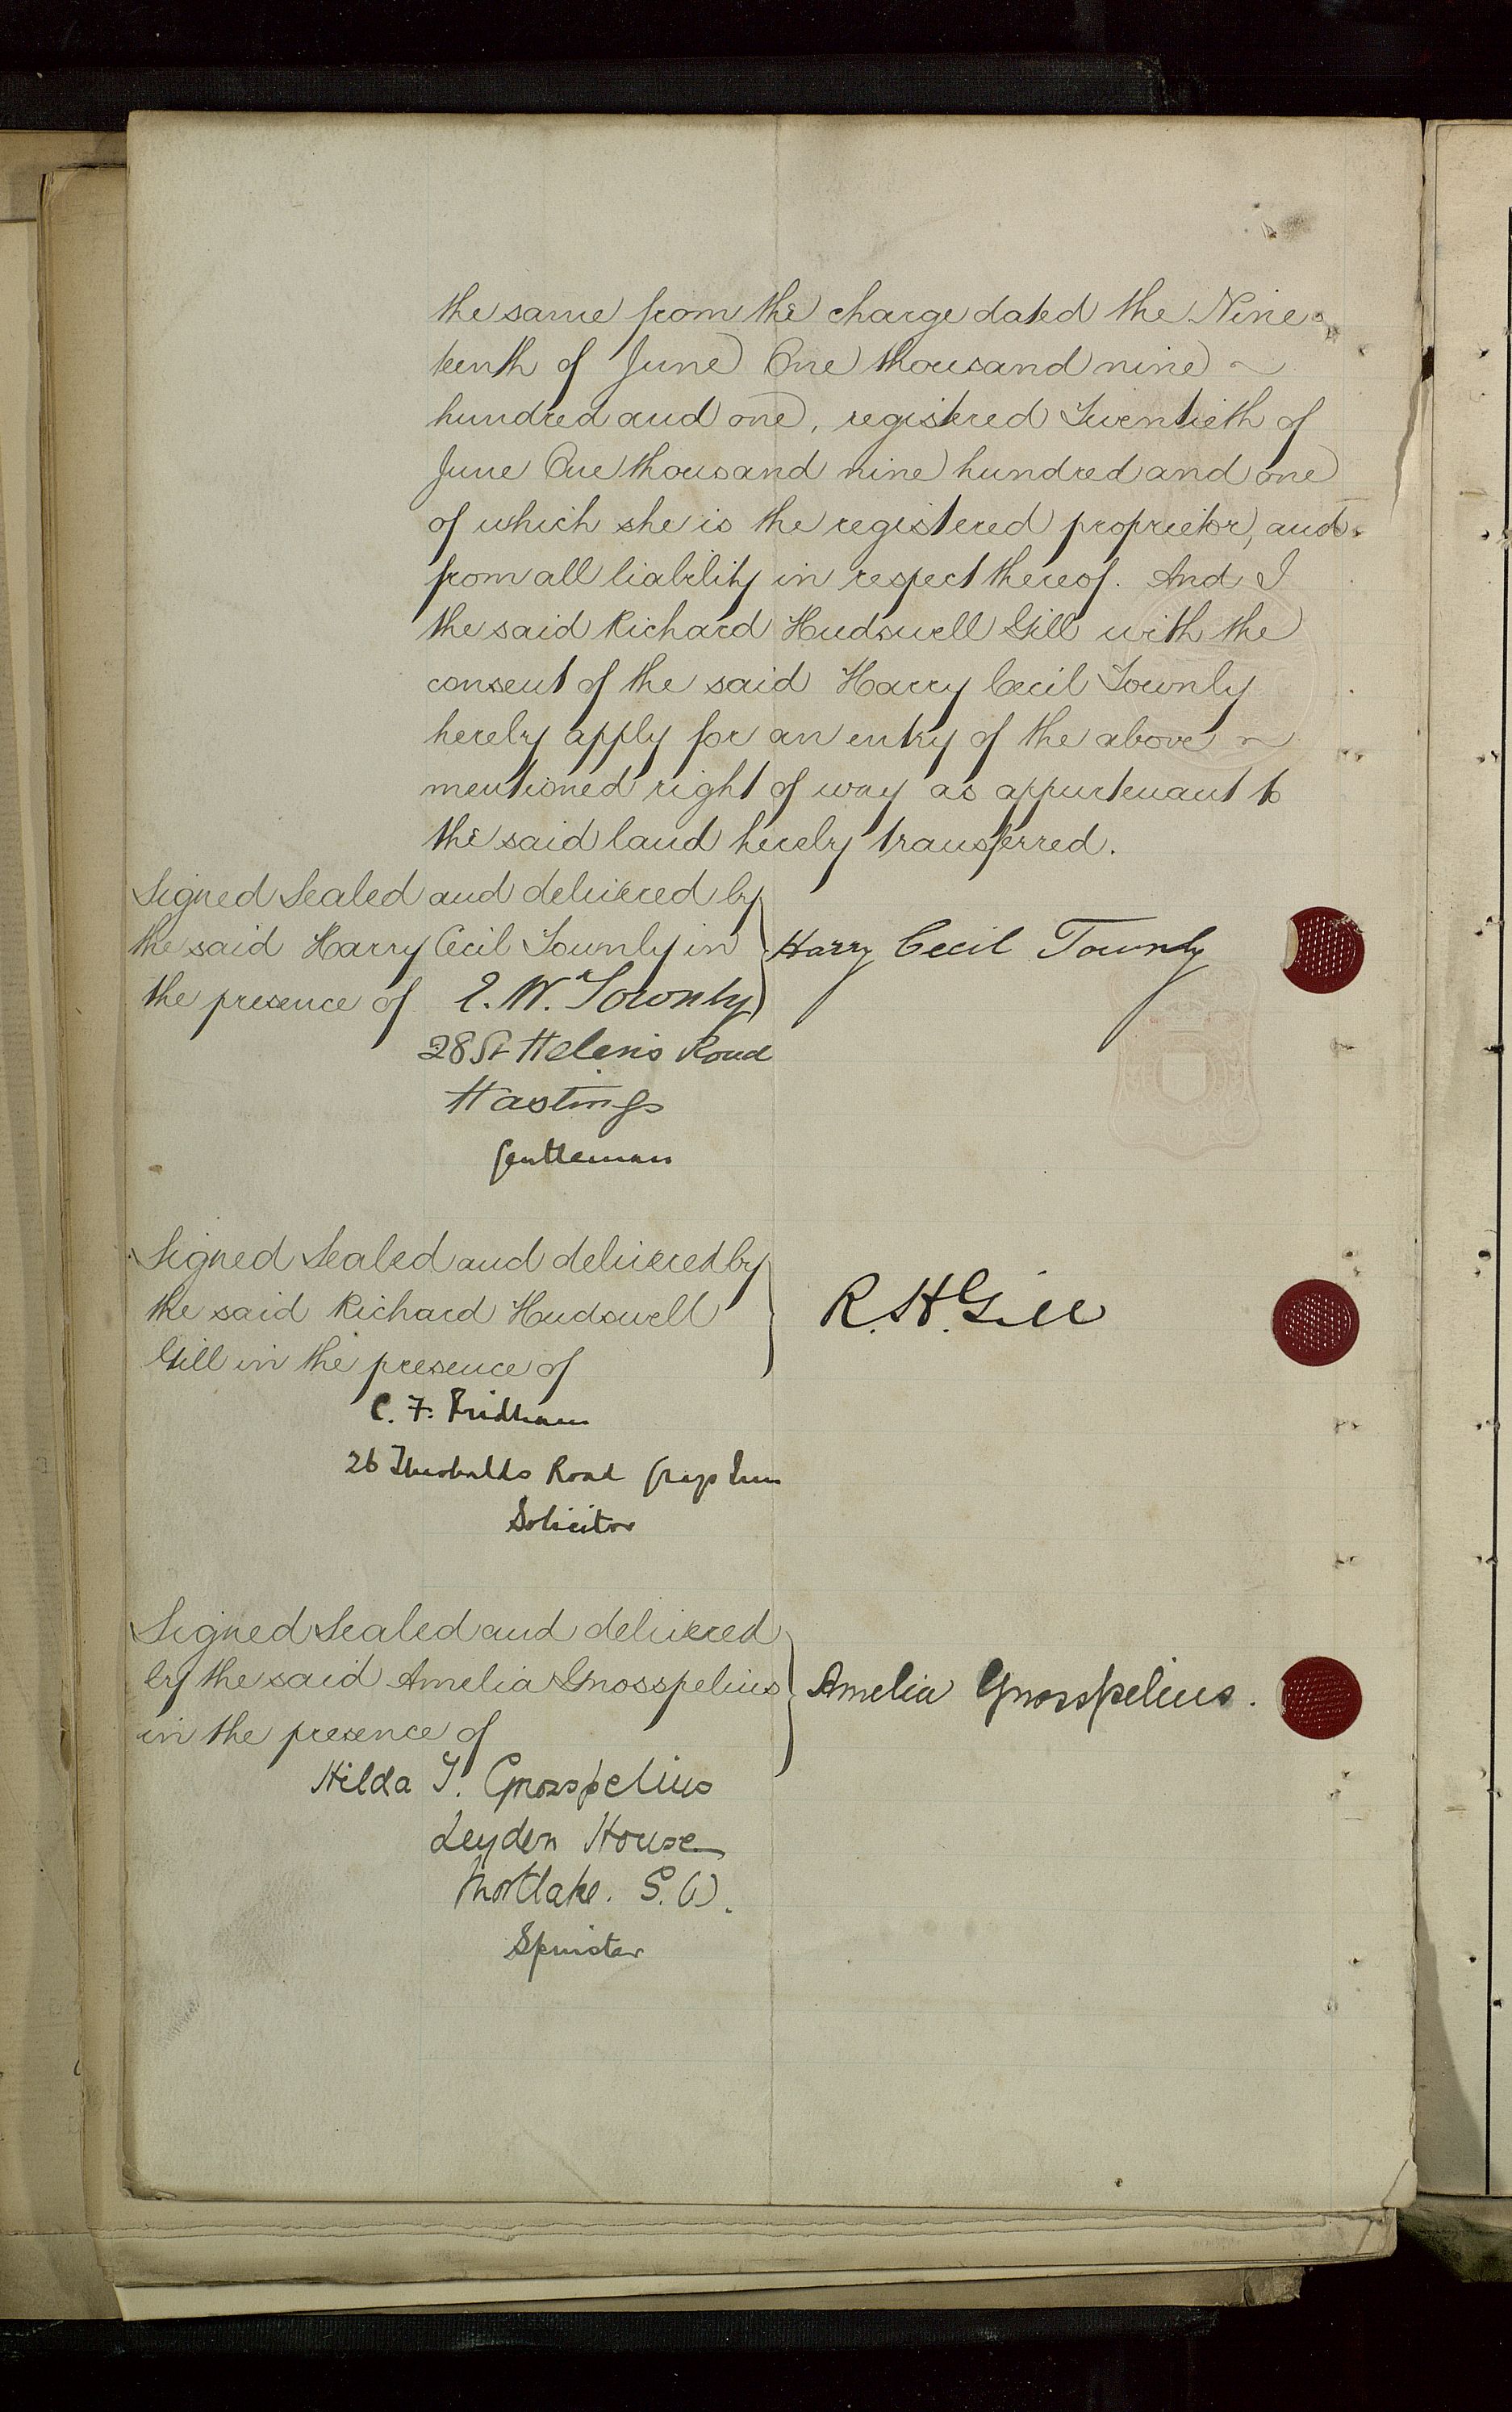 the same from the charge dated the Nine-
teenth of June One thousand nine ~
hundred and one, registered Twentieth of
June One thousand nine hundred and one
of which she is the registered proprietor, and
from all liability in respect thereof. And I
the said Richard Hudswell Gill with the
consent of the said Harry Cecil Townly
hereby apply for an entry of the above ~
mentioned right of way as appurtenant to
the said land hereby transferred.
Signed Sealed and delivered by
the said Harry Cecil Townly in
the presence of
Harry Cecil Townly
W. Townly
28 St Helen's Road
Hastings
Gentleman
Signed Sealed and delivered by
the said Richard Hudswell
Gill in the presence of
R. H. Gill
C. F. Pridham
26 Theobalds Road Grays Inn
Solicitor
Signed Sealed and delivered
by the said Amelia Gnosspelius
in the presence of
Amelia Gnosspelius.
Hilda Gnosspelius
Leyden House
Mortlake. S.W.
Spinster